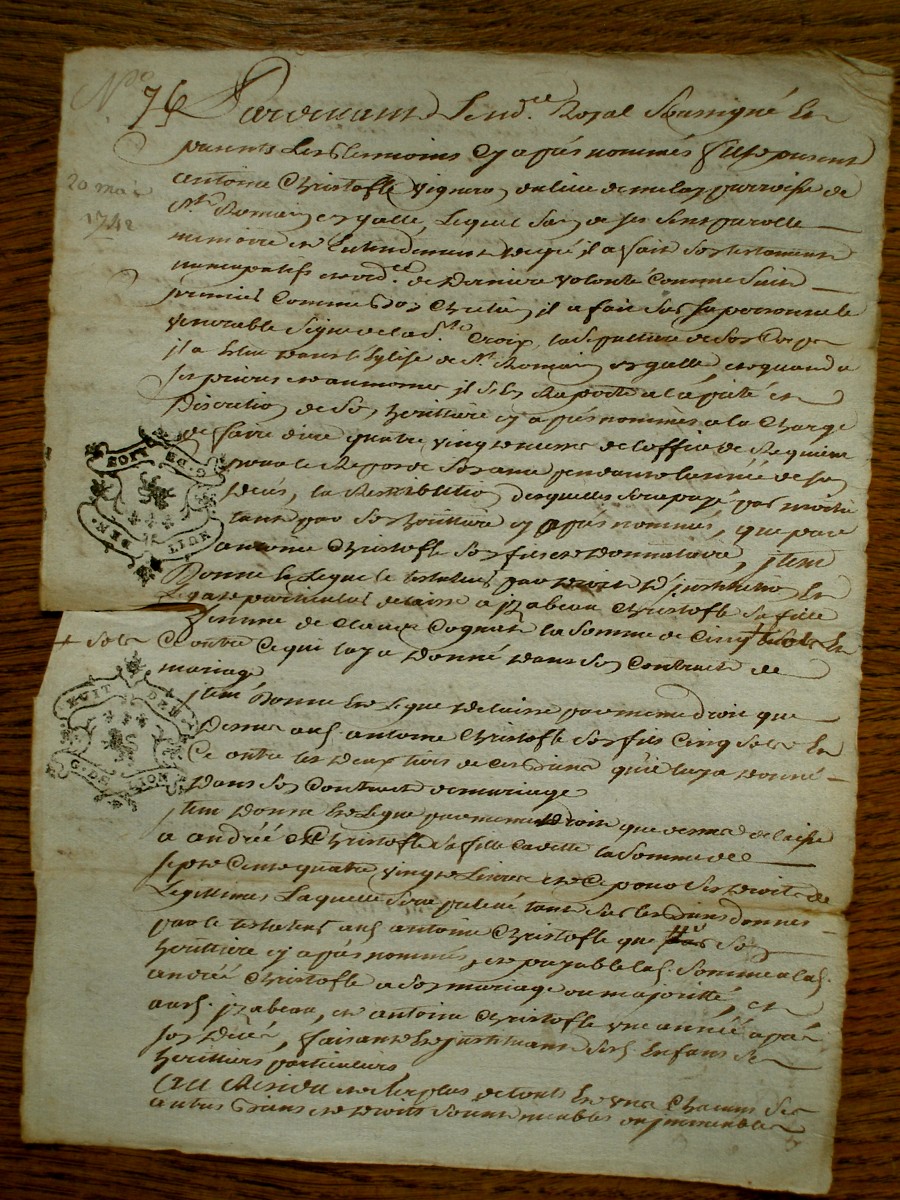 N° 76
20 mai
1742
Pardevant Le no.re Royal Soussigné Et
presents Les tesmoins cy apres nommés fut present
antoine Christofle vigneron du lieu de parroisse de
St. Romain en galle, Lequel Sain de Ses Sens parolle
memoire et Entendement de gré il a fait Son testament
nuncupatif et ord.re de Derniere volonté Comme Suit
premier Comme bon Chretien il a fait Sur Sa personne le
venerable Signe de la Ste. Croix, la Sepulture de Son Corps
il a Eslu dans l'Eglise de St. Romain en galle, et quand a
Ses prieres et aumones il S'En Raporte a la pieté et
Discretion de Son heritiere cy apres nommée a la Charge
de faire dire quatre vingt messes de l'office de Requiem
pour le Repos de Son ame pendant l'année de Son
Deces, la Retribution desquelles Sera payé par moitié
tant par Son heritiere cy apres nommée, que par
antoine Christofle Son fils et Donnataire, Item
Donne et Legue le testateur par droit D'institution Et
Legat particulier delaisse a Izabeau Christofle Sa fille
femme de Claude Cognat la Somme de Cinq Et
+ sols
Ce outre Ce qui luy a Donné dans Son Contract de
mariage
Item Donne Et Legue Delaisse par meme droit que
Dessus aud. antoine Christofle Son fils Cinq Sols Et
Ce outre les deux tiers de Ces biens qu'il luy a Donné
Dans Son Contract de mariage
Item Donne Et Legue par meme Droit que dessus delaisse
a andrée Christofle Sa fille Cadette la Somme de
Sept Cent quatre vingt Livres et Ce pour Ses Droits de
Legitimes Laquelle Sera prelevé tant Sur les Biens donnes
par le testateur aud. antoine Christofle que Son
heritiere cy apres nommée, et payable lad. Somme a lad.
andrée Christofle a Son mariage ou majorité, et
auxd. Izabeau, et antoine Christofle une année apres
Son Deces, faisant Et instituant Sesd. Enfans Ses
heritiers particuliers
Et au Residu et Surplus de touts Et uns Chacuns Ses
autres Biens et Droits Soient meubles ou immeubles
EGIT DE
G. DE LION